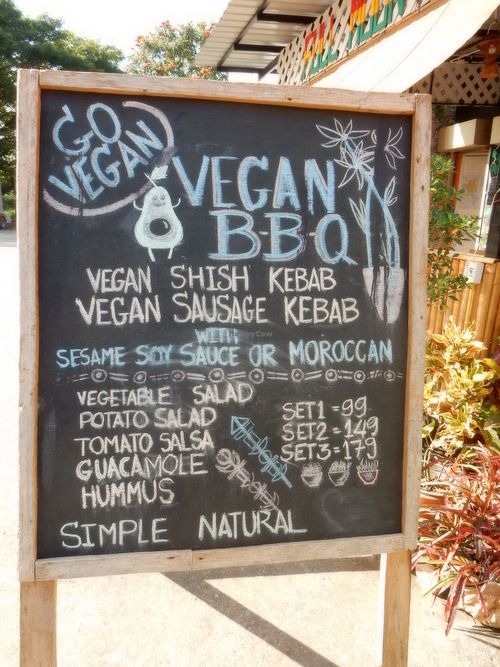 GO
VEGAN
VEGAN
B-B-Q
VEGAN SHISH KEBAB
VEGAN SAUSAGE KEBAB
WITH
SESAME SOY SAUCE OR MOROCCAN
VEGETABLE SALAD
POTATO SALAD
TOMATO SALSA
GUACAMOLE
HUMMUS
SET1 = 99
SET2 = 149
SET3 = 179
SIMPLE NATURAL